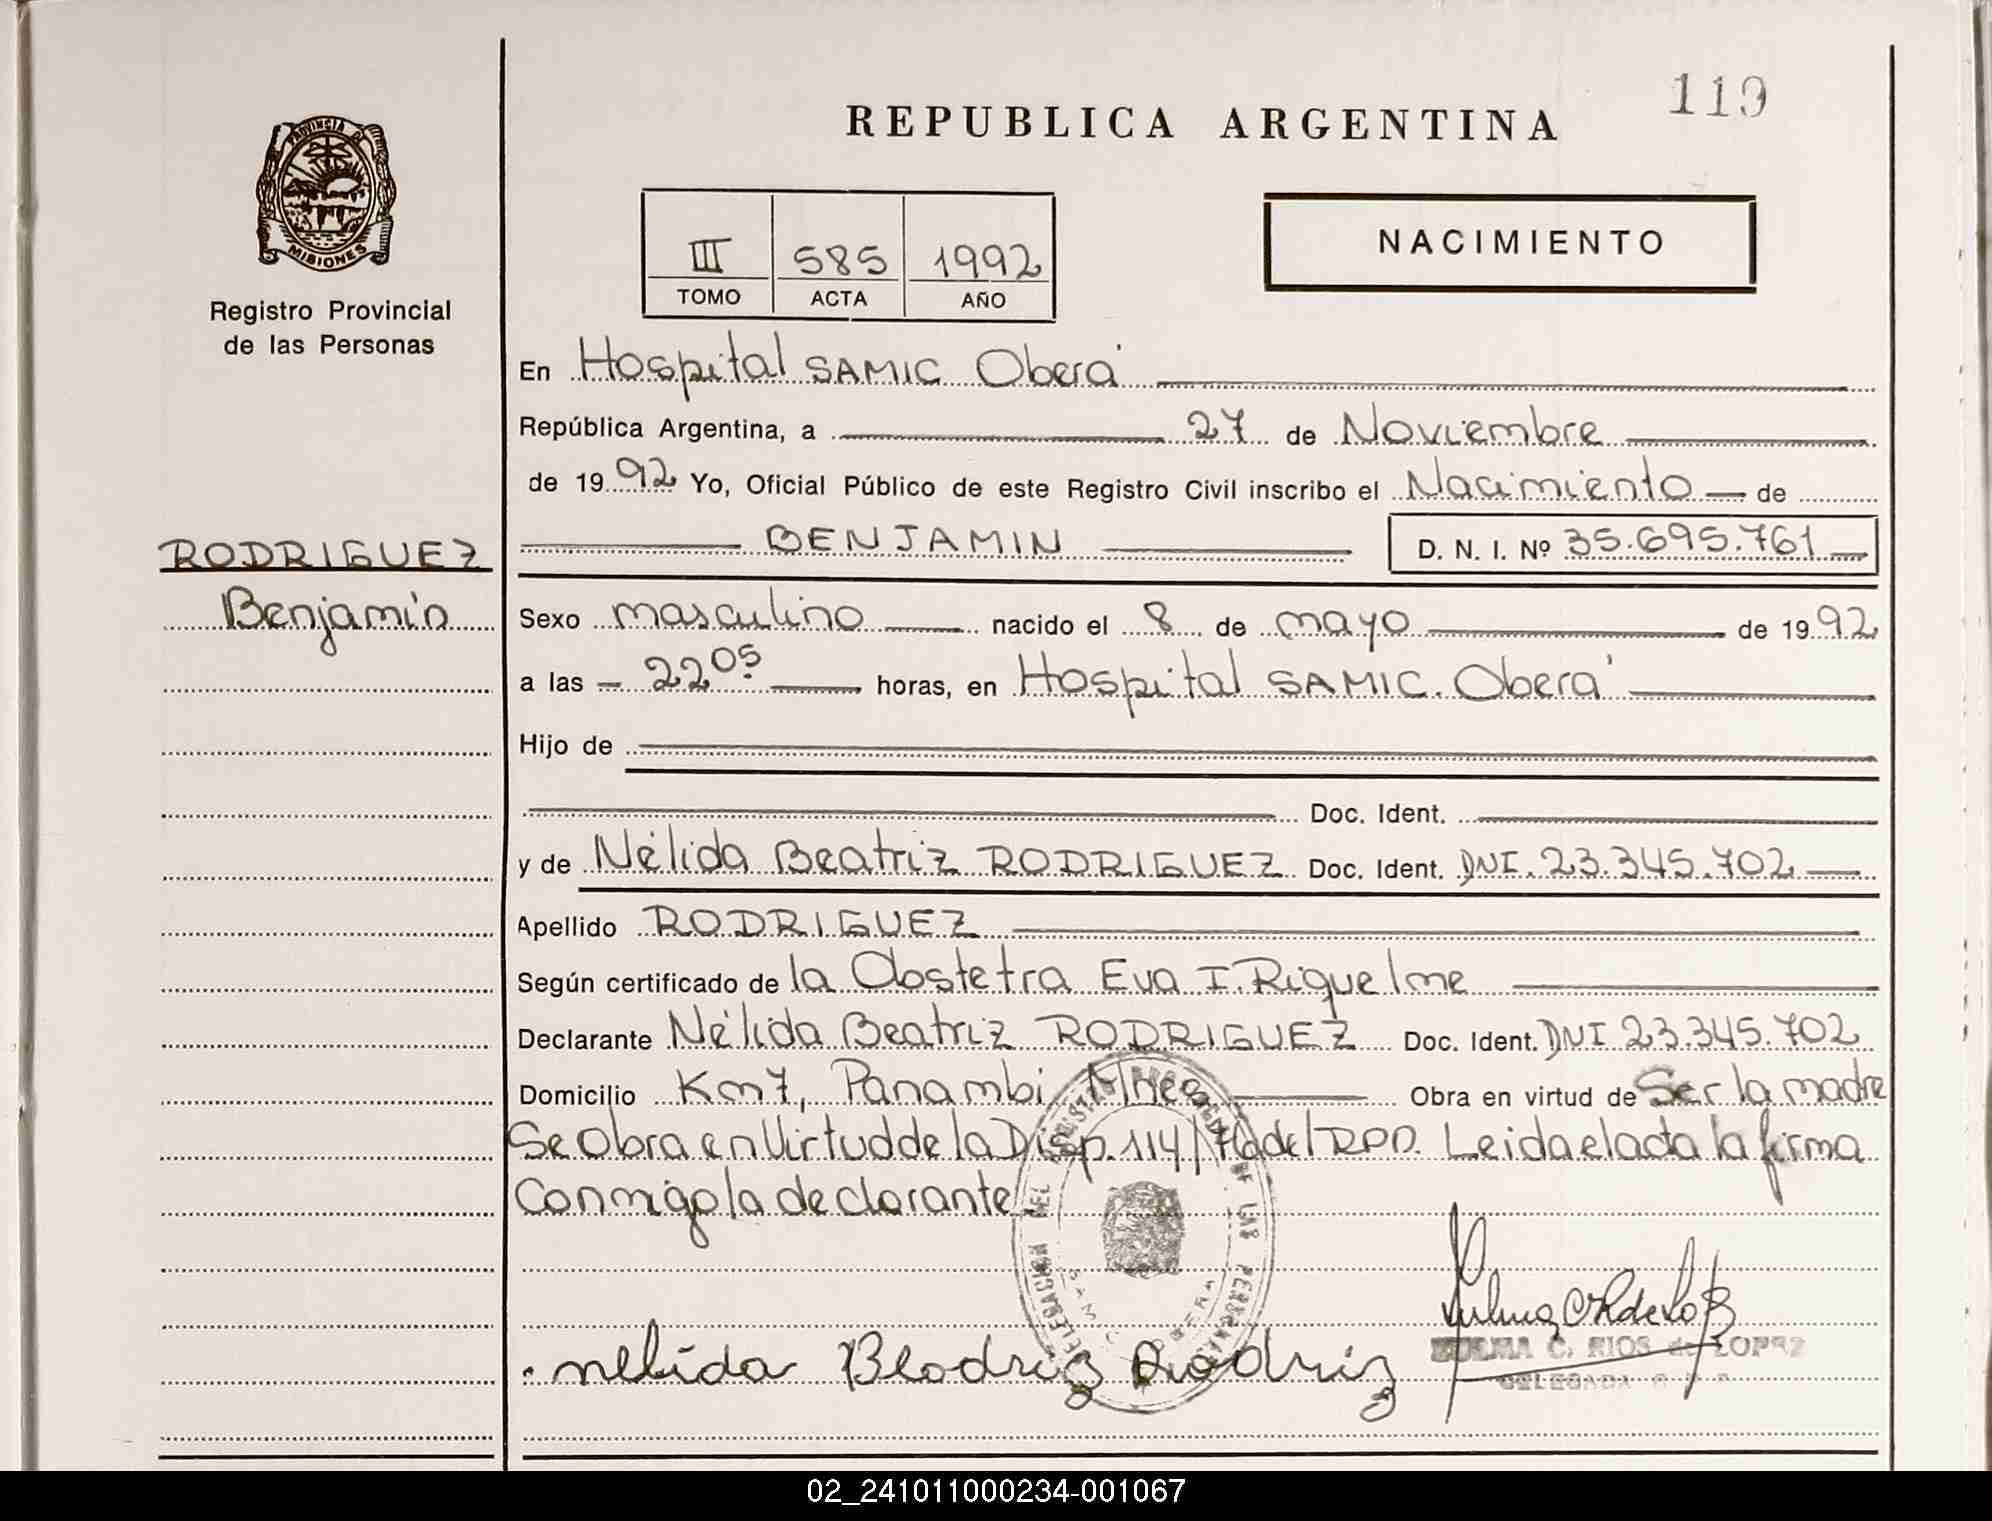 119
REPUBLICA ARGENTINA
PROVINCIA DE
MISIONES
Registro Provincial
de las Personas
III 585 1992
TOMO ACTA AÑO
NACIMIENTO
En Hospital SAMIC Oberá
República Argentina, a 27 de Noviembre
de 1992 Yo, Oficial Público de este Registro Civil inscribo el Nacimiento de
BENJAMIN D. N. I. Nº 35.695.761
RODRIGUEZ
Benjamín
Sexo masculino nacido el 8 de mayo de 1992
a las 22 05 horas, en Hospital SAMIC. Oberá
Hijo de
Doc. Ident.
y de Nélida Beatriz RODRIGUEZ Doc. Ident. DNI. 23.345.702
Apellido RODRIGUEZ
Según certificado de la Obstetra Eva I. Riquelme
Declarante Nélida Beatriz RODRIGUEZ Doc. Ident. DNI 23.345.702
Domicilio Km 7, Panambi, Mnes Obra en virtud de Ser la madre
Se Obra en Virtud de la Disp. 114/ del RPP. Leida el acta la firma
Conmigo la declarante
DELEGACION DEL DE LAS PERSONAS
SAMIC OBERA
ZULMA C. RIOS de LOPEZ
DELEGADA
02_241011000234-001067